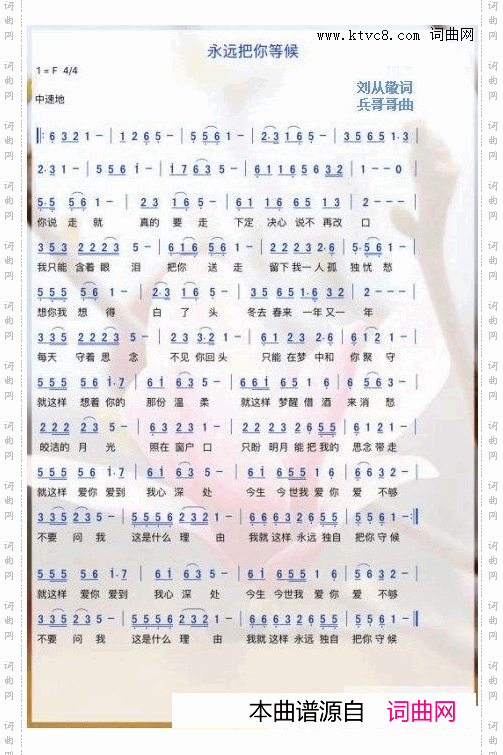 www.ktvc8.com 词曲网
永远把你等候
1=F 4/4
刘从敬词
中速地
兵哥哥曲
‖: 6 3 2 1 - | 1 2 6 5 - | 5 5 6 1 - | 2·3 1 6 5 - | 3 5 6 5 1·3 |
2·3 1 - | 5 5 6 i - | i 7 6 3 5 - | 6 1 1 6 5 6 3 2 | 1 - - 0 |
5·5 5 6 1 - | 2 3 1 6 5 - | 6 1 1 6 6 5 1 3 | 2 - - - |
你说 走 就 真的 要 走 下定 决心 说不 再改 口
3 5 3 2 2 2 3 5 - | 6 1 6 5 6 1 - | 2 2 2 3 2 6 | 5·5 6 1 - |
我只能 含着 眼 泪 把你 送 走 留下 我一 人 孤 独 忧 愁
5 5 5 5 6 1 - | 2·3 1 6 5 - | 3 5 6 5 1·6 1 3 | 2 - - - |
想你我 想 得 白 了 头 冬去 春来 一年 又一 年
3 3 5 2 3 5 - | 2 3 3·2 1 - | 6 1 2 3 2 6 | 6 1 2 1 - |
每天 守着 思 念 不见 你回 头 只能 在梦 中和 你 聚 守
5 5 5 5 6 i·7 | 6 i 6 3 5 - | 6 6 i 6 5 1 6 | 5 6 3 2 - |
就这样 想着 你的 那份 温 柔 就这样 梦醒 借 酒 来 消 愁
2 2 2 2 3 5 - | 6 i 6 3 5 - | 2 2 2 3 2 6 5 5 | 6 1 2 1 - |
皎洁的 月 光 照在 窗户 口 只盼 明月 能 把我的 思念 带走
5 5 5 5 6 i·7 | 6 i 6 3 5 - | 6 i 5 5 5 1 6 | 6 6 3 2 - |
就这样 爱你 爱到 我心 深 处 今生 今世我 爱 你 爱 不够
3 3 5 2 3 5 - | 5 5 5 5 6 2 3 2 1 - | 6 6 6 3 2 6 5 5 | 5 5 6 1 - :‖
不要 问 我 这是什么 理 由 我就 这样 永远 独自 把你 守候
5 5 5 5 6 i·7 | 6 i 6 3 5 - | 6 i 5 5 5 1 6 | 6 6 3 2 - |
就这样 爱你 爱到 我心 深 处 今生 今世我 爱 你 爱 不够
3 3 5 2 3 5 - | 5 5 5 5 6 2 3 2 1 - | 6 6 6 3 2 6 5 5 | 5 5 6 1 - ‖
不要 问 我 这是什么 理 由 我就 这样 永远 独自 把你 守候
本曲谱源自 词曲网